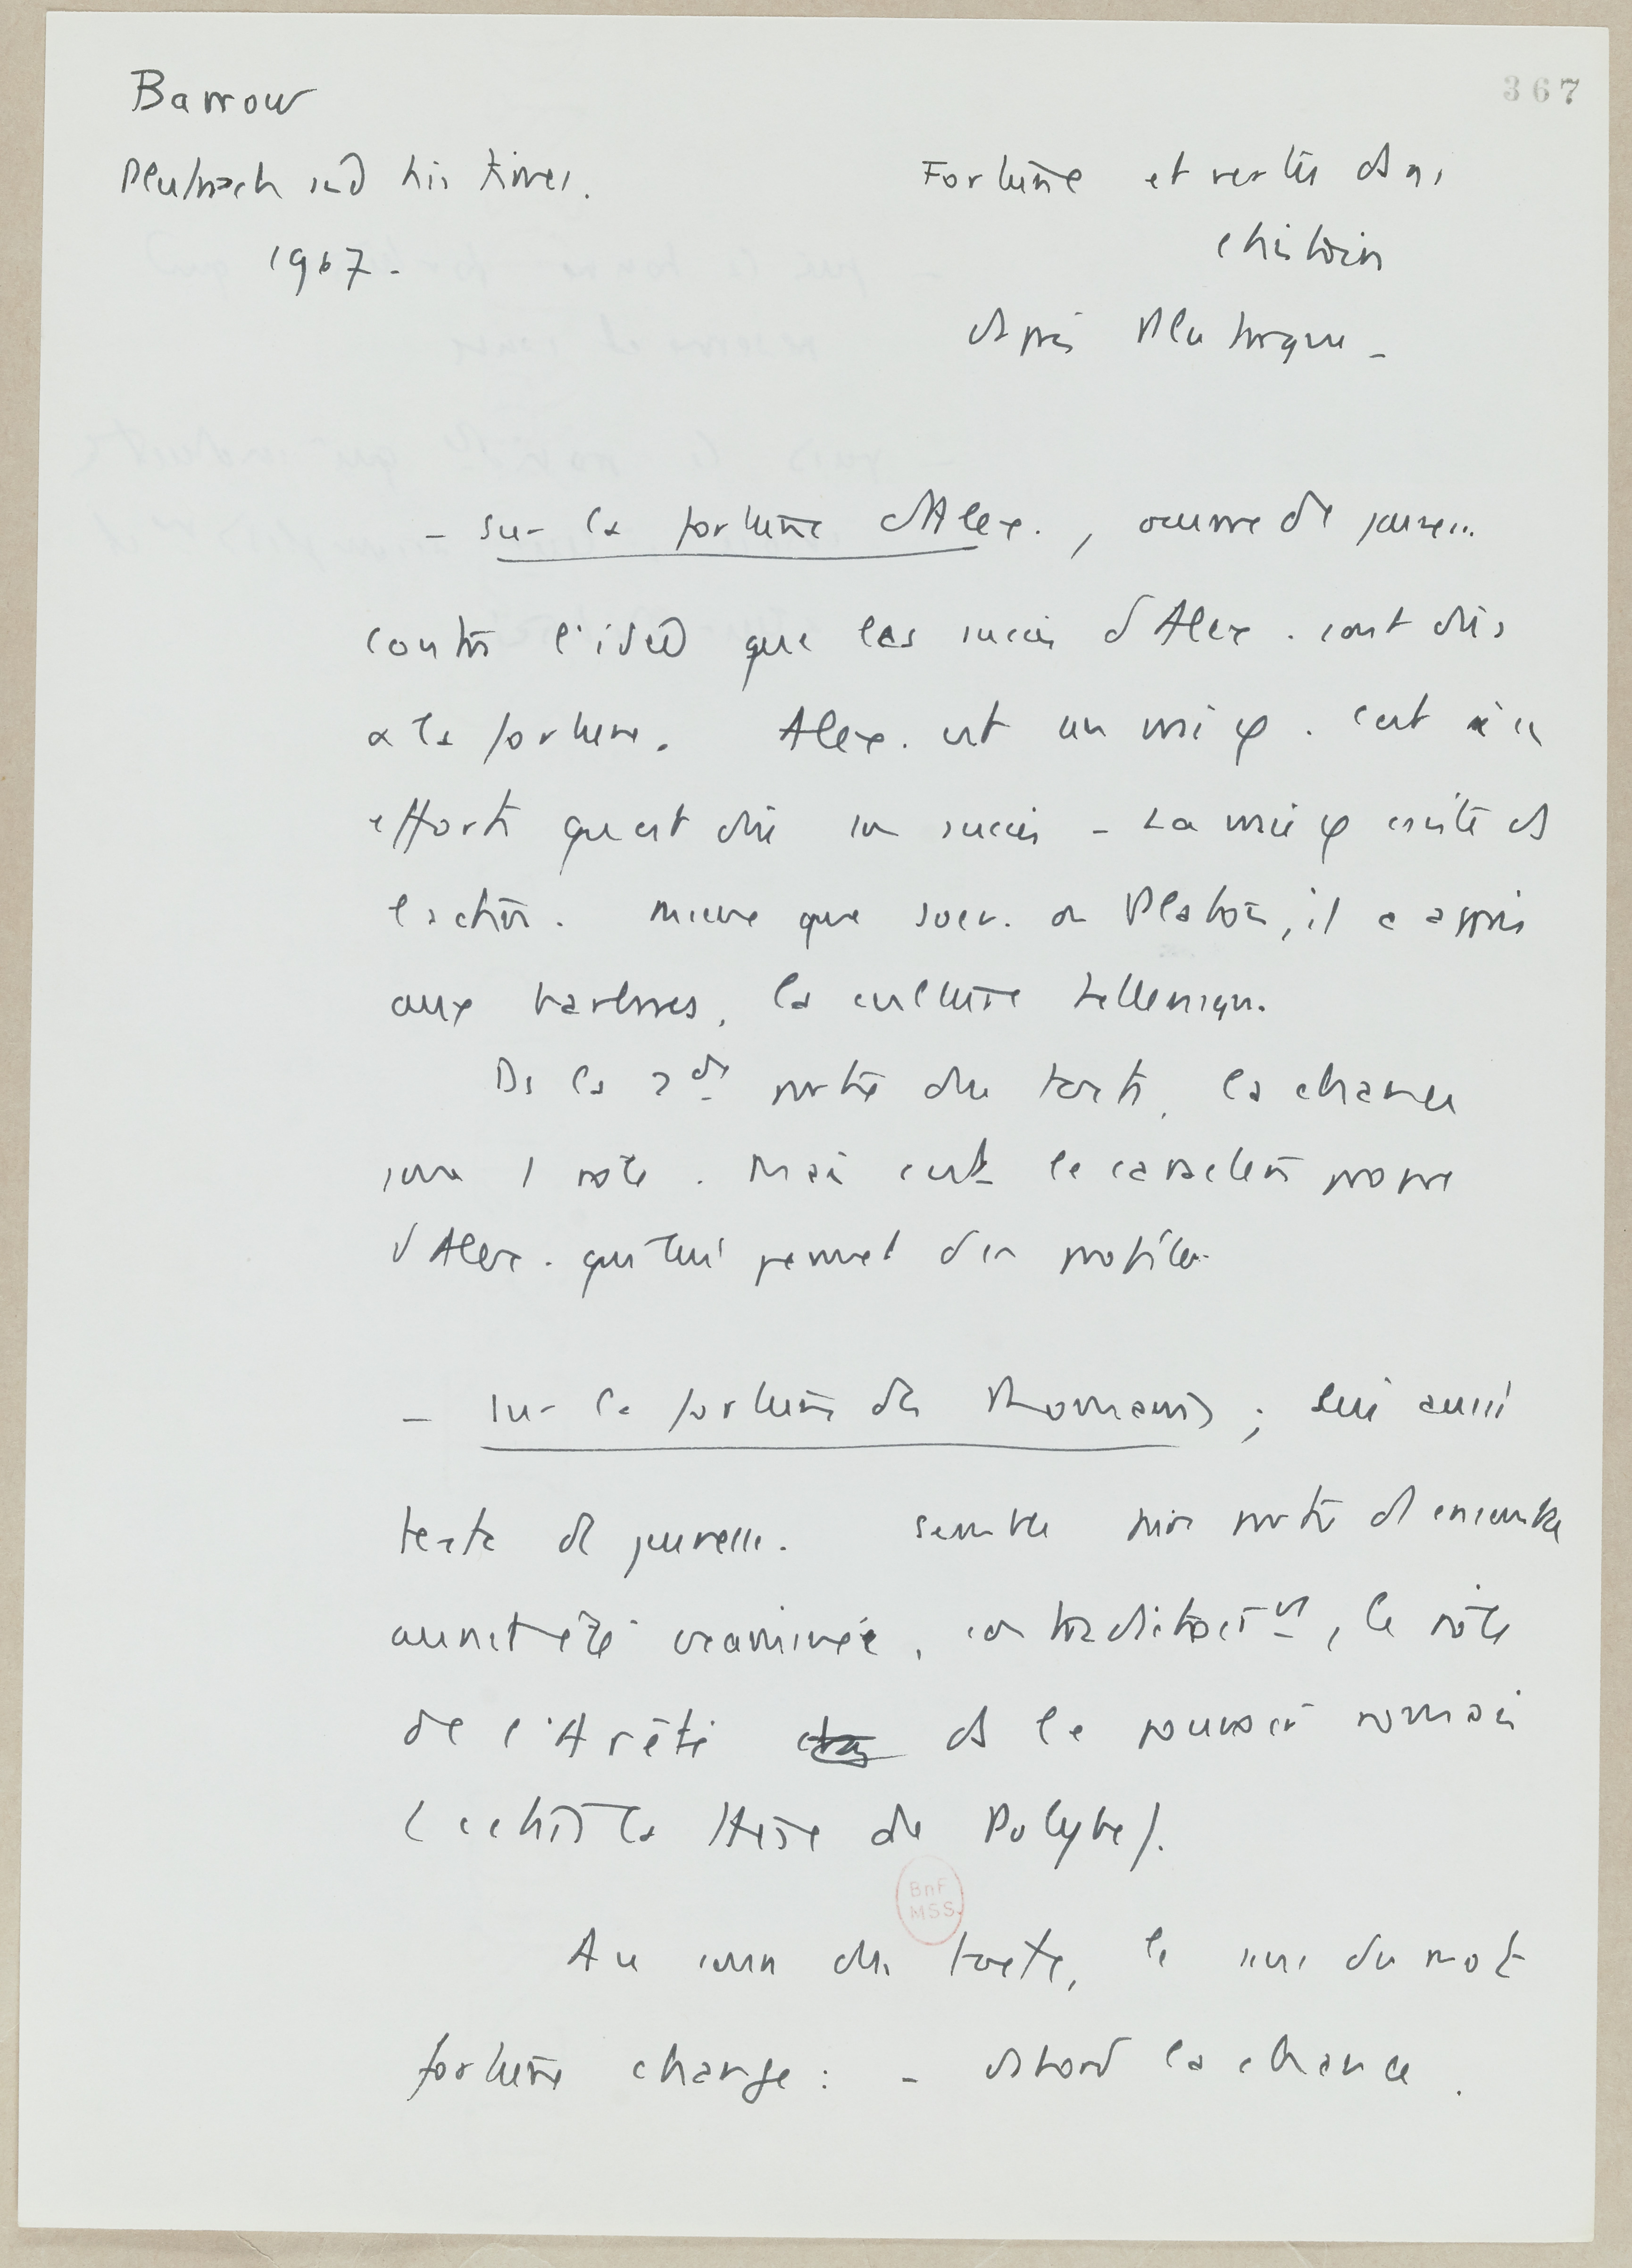 Barrow
367
Plutarch and his times.
1967.
Fortune et vertu dans
l'histoire
d'après Plutarque -
- sur la fortune d'Alex., œuvre de jeunesse
contre l'idée que les succès d'Alex. sont dûs
à la fortune. Alex. est un vrai φ. C'est à ses
efforts qu'est dû son succès - La vraie φ consiste ds
l'action. Mieux que Socr. ou Platon, il a appris
aux barbares, la culture hellénique.
Ds la 2de partie du texte, la chance
joue 1 rôle. Mais c'est le caractère propre
d'Alex. qui lui permet d'en profiter
- sur la fortune des Romains; lui aussi
texte de jeunesse. Semble faire partie d'ensemble
où aurait été examinée, contradictoirt, le rôle
de l'Arêtê ds le pouvoir romain
(c'était la thèse de Polybe).
Au cours du texte, le sens du mot
fortune change : - d'abord la chance.
BnF
MSS.